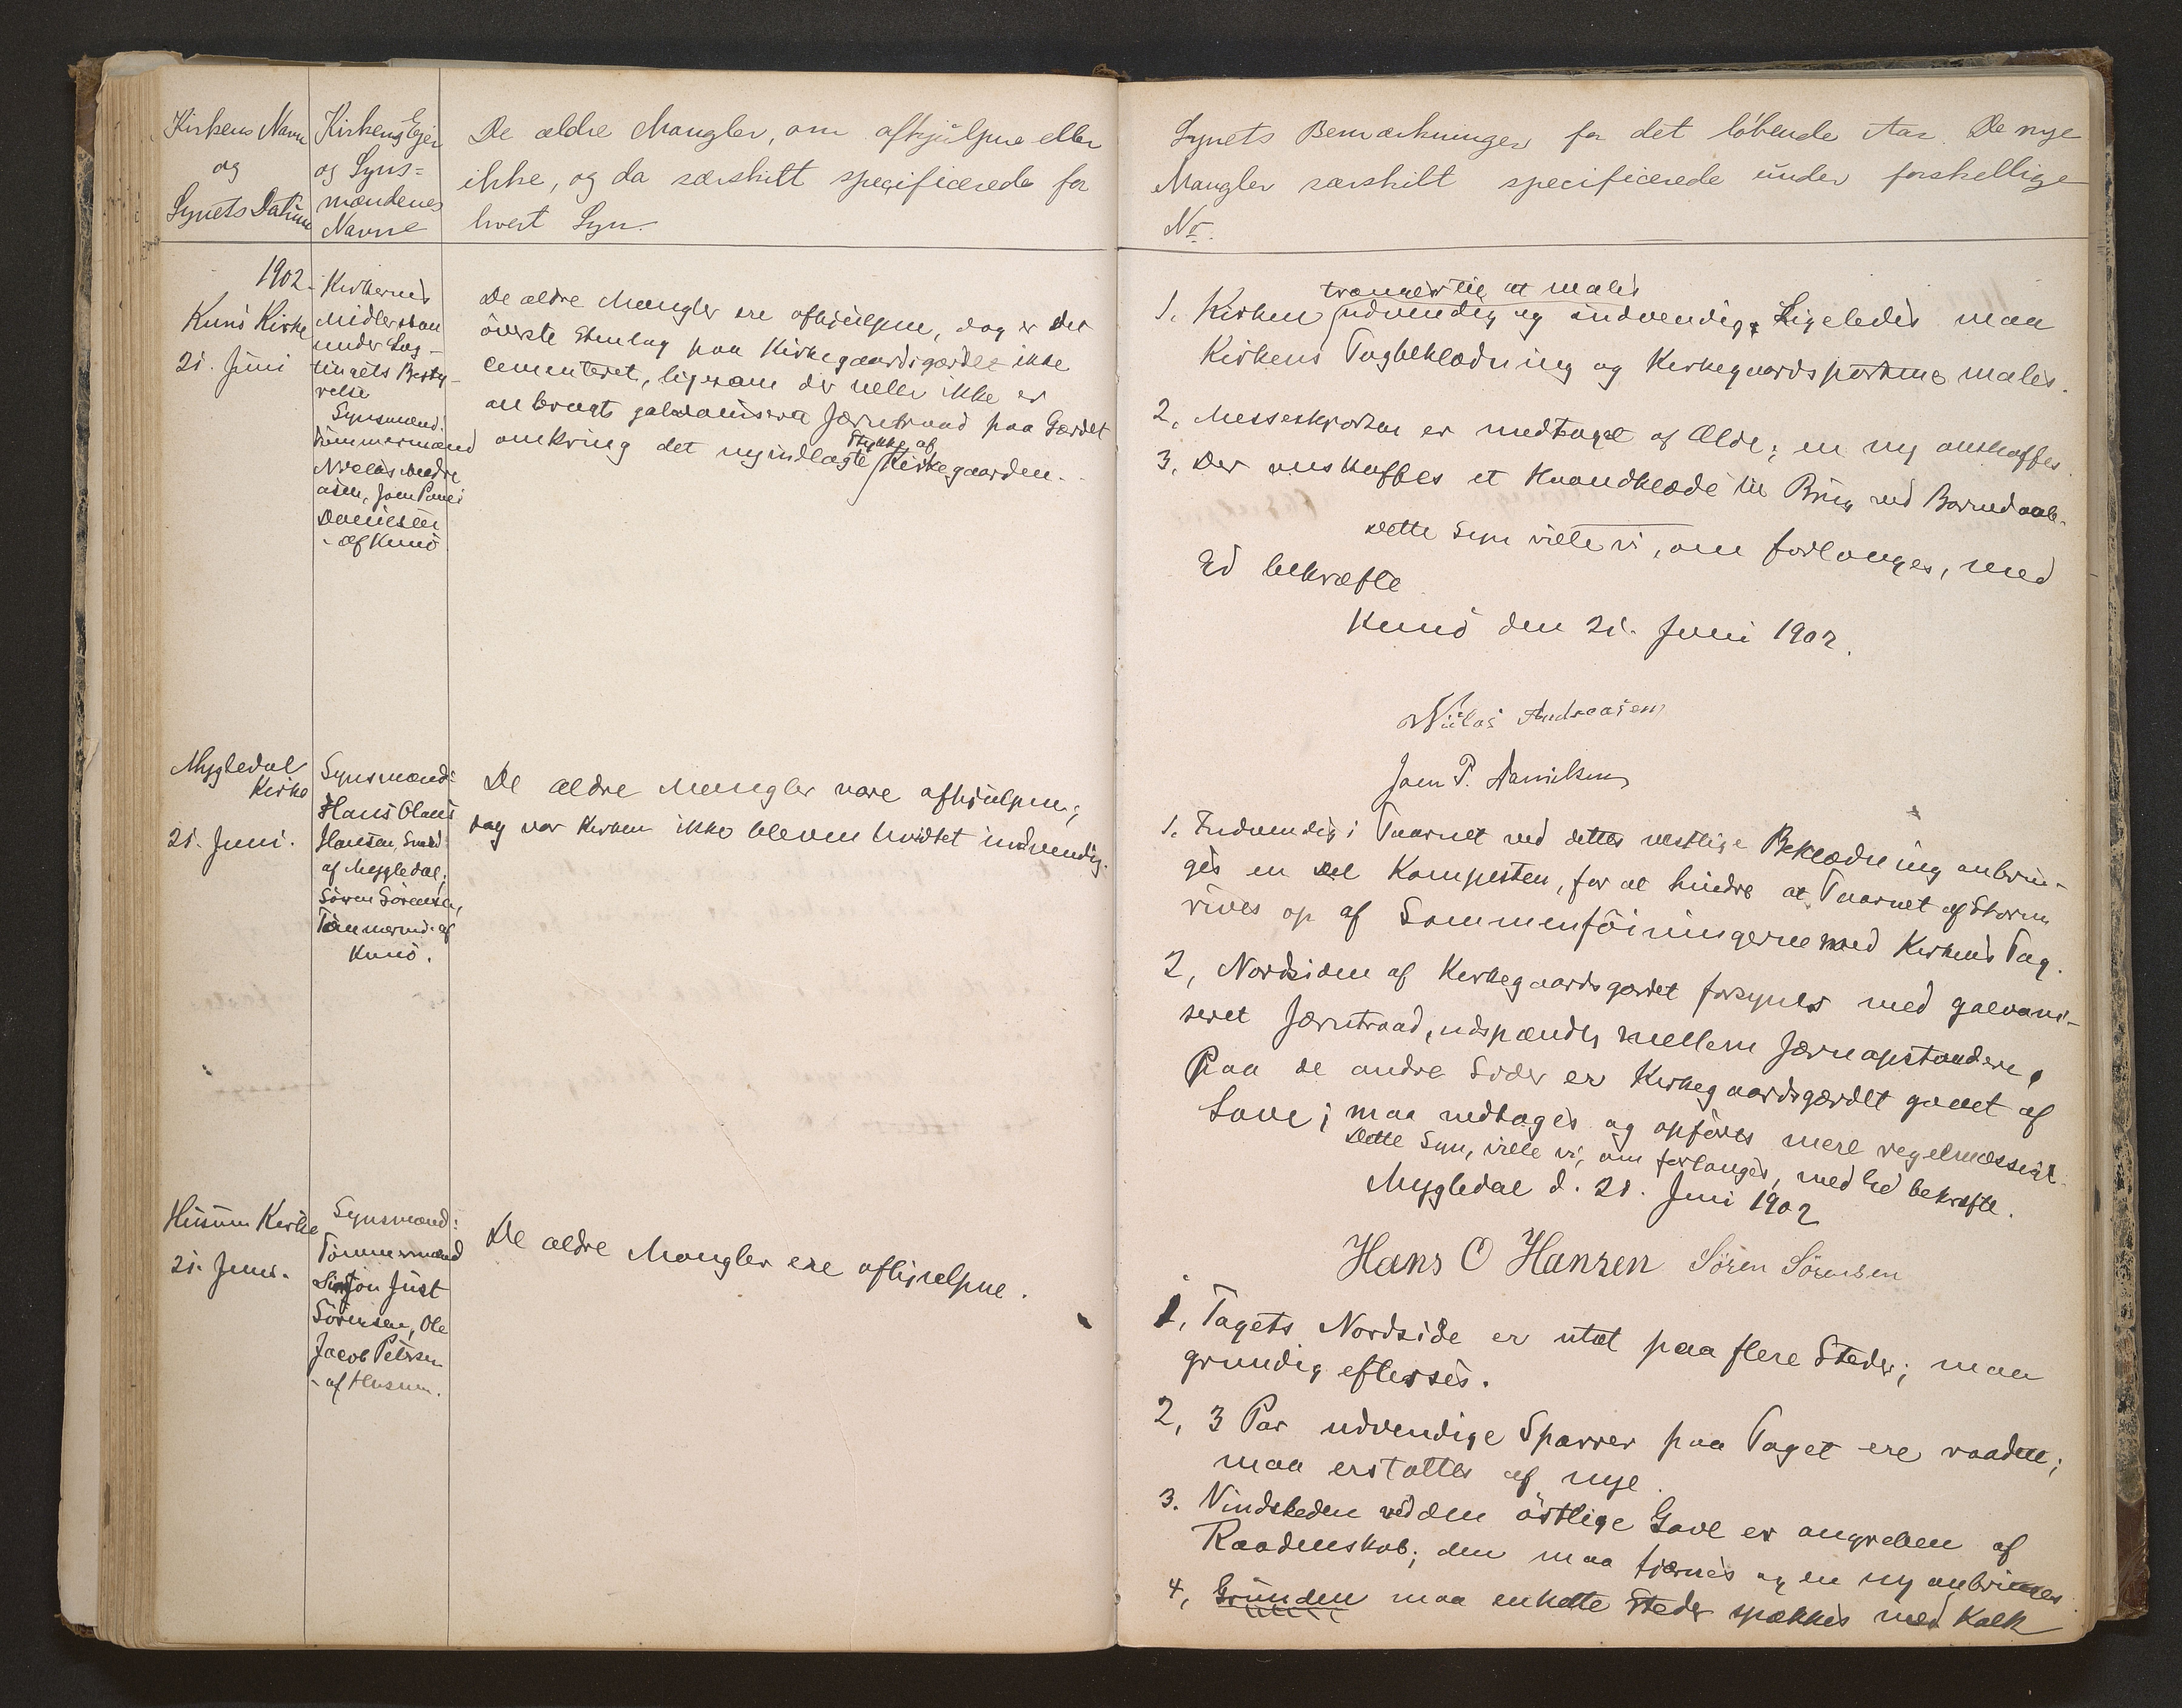 Kirkens Navn
og
Synets Datum
Kirkens Ejer
og Syns=
mændenes
Navne
De ældre Mangler, om afhjulpne eller
ikke, og da særskilt specificerede for
hvert Syn.
1902.
Kunö Kirke
21. Juni
Kirkernes
Midler staa
under Lag-
tingets Besty-
relse
Synsmænd:
Tömmermænd
Niclas Andre
asen, Joen Poul
Danielsen
- af Kunö
De ældre Mangler ere afhjulpne, dog er det
överste Stenlag paa Kirkegaardsgærdet ikke
cementeret, ligesom der heller ikke er
anbragt galvaniseret Jærntraad paa Gærdet
omkring det nyindlagte Stykke af Kirkegaarden.
Mygledal
Kirke
21. Juni.
Synsmænd:
Hans Olaus
Hansen, Smed
af Mygledal;
Sören Sörensen,
Tömmermd. af
Kunö.
De ældre Mangler vare afhjulpne;
dog var Kirken ikke bleven hvidtet indvendig.
Husum Kirke
21. Juni.
Synsmænd:
Tömmermænd
Simon Just
Sörensen, Ole
Jacob Petersen
- af Husum.
De ældre Mangler ere afhjulpne.
Synets Bemærkninger for det löbende Aar. De nye
Mangler særskilt specificerede under forskellige
No.
trænger til at males
1. Kirken udvendig og indvendig. Ligeledes maa
Kirkens Tagbeklædning og Kirkegaardsportene males.
2. Messeskjorten er medtaget af Ælde; en ny anskaffes.
3. Der anskaffes et Haandklæde til Brug ved Barnedaab.
Dette Syn ville vi, om forlanges, med
Ed bekræfte
Kunö den 21. Juni 1902.
Niclas Andreasen
Joen P. Danielsen
1. Indvendig i Taarnet ved dettes vestlige Beklædning anbrin-
ges en Del Kampesten, for at hindre at Taarnet af Storm
rives op af Sammenföiningerne med Kirkens Tag.
2, Nordsiden af Kirkegaardsgærdet forsynes med galvani-
seret Jærntraad, udspændt mellem Jærnopstandere.
Paa de andre Sider er Kirkegaardsgærdet gaaet af
Lave; maa nedtages og opföres mere regelmæssigt.
Dette Syn, ville vi, om forlanges, med Ed bekræfte.
Mygledal d. 21. Juni 1902
Hans O Hansen Sören Sörensen
1, Tagets Nordside er utæt paa flere Steder; maa
grundig efterses.
2, 3 Par udvendige Sparrer paa Taget ere raadne;
maa erstattes af nye.
3. Vindskeden ved den östlige Gavl er angreben af
Raadenskab; den maa fjærnes og en ny anbringes.
4, Grunden maa enkelte Steder spækkes med Kalk